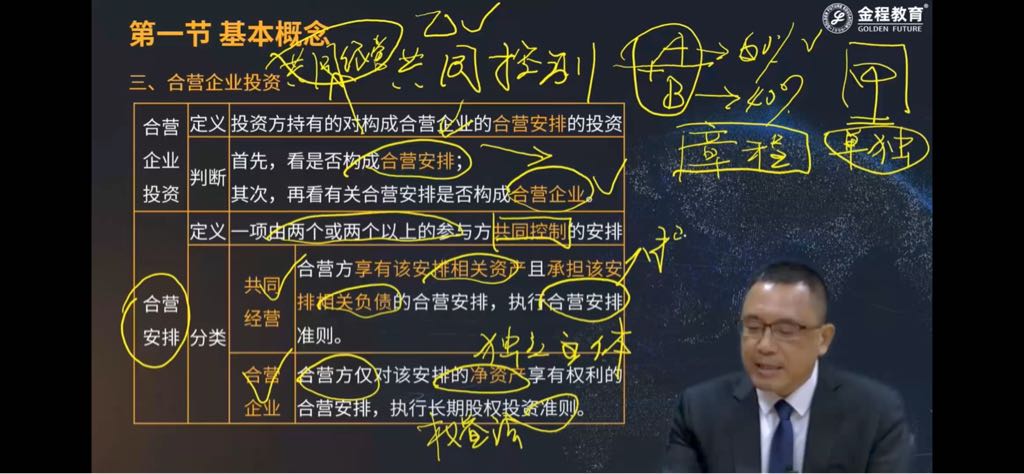 第一节 基本概念
金程教育
GOLDEN FUTURE
共同经营 共同控制
A → 60%
B → 40%
甲
章程
单独
三、合营企业投资
合营企业投资
定义 投资方持有的对构成合营企业的合营安排的投资
判断 首先，看是否构成合营安排；
其次，再看有关合营安排是否构成合营企业。
合营安排
定义 一项由两个或两个以上的参与方共同控制的安排
分类
共同经营 合营方享有该安排相关资产且承担该安
排相关负债的合营安排，执行合营安排
准则。
独立主体
合营企业 合营方仅对该安排的净资产享有权利的
合营安排，执行长期股权投资准则。
权益法